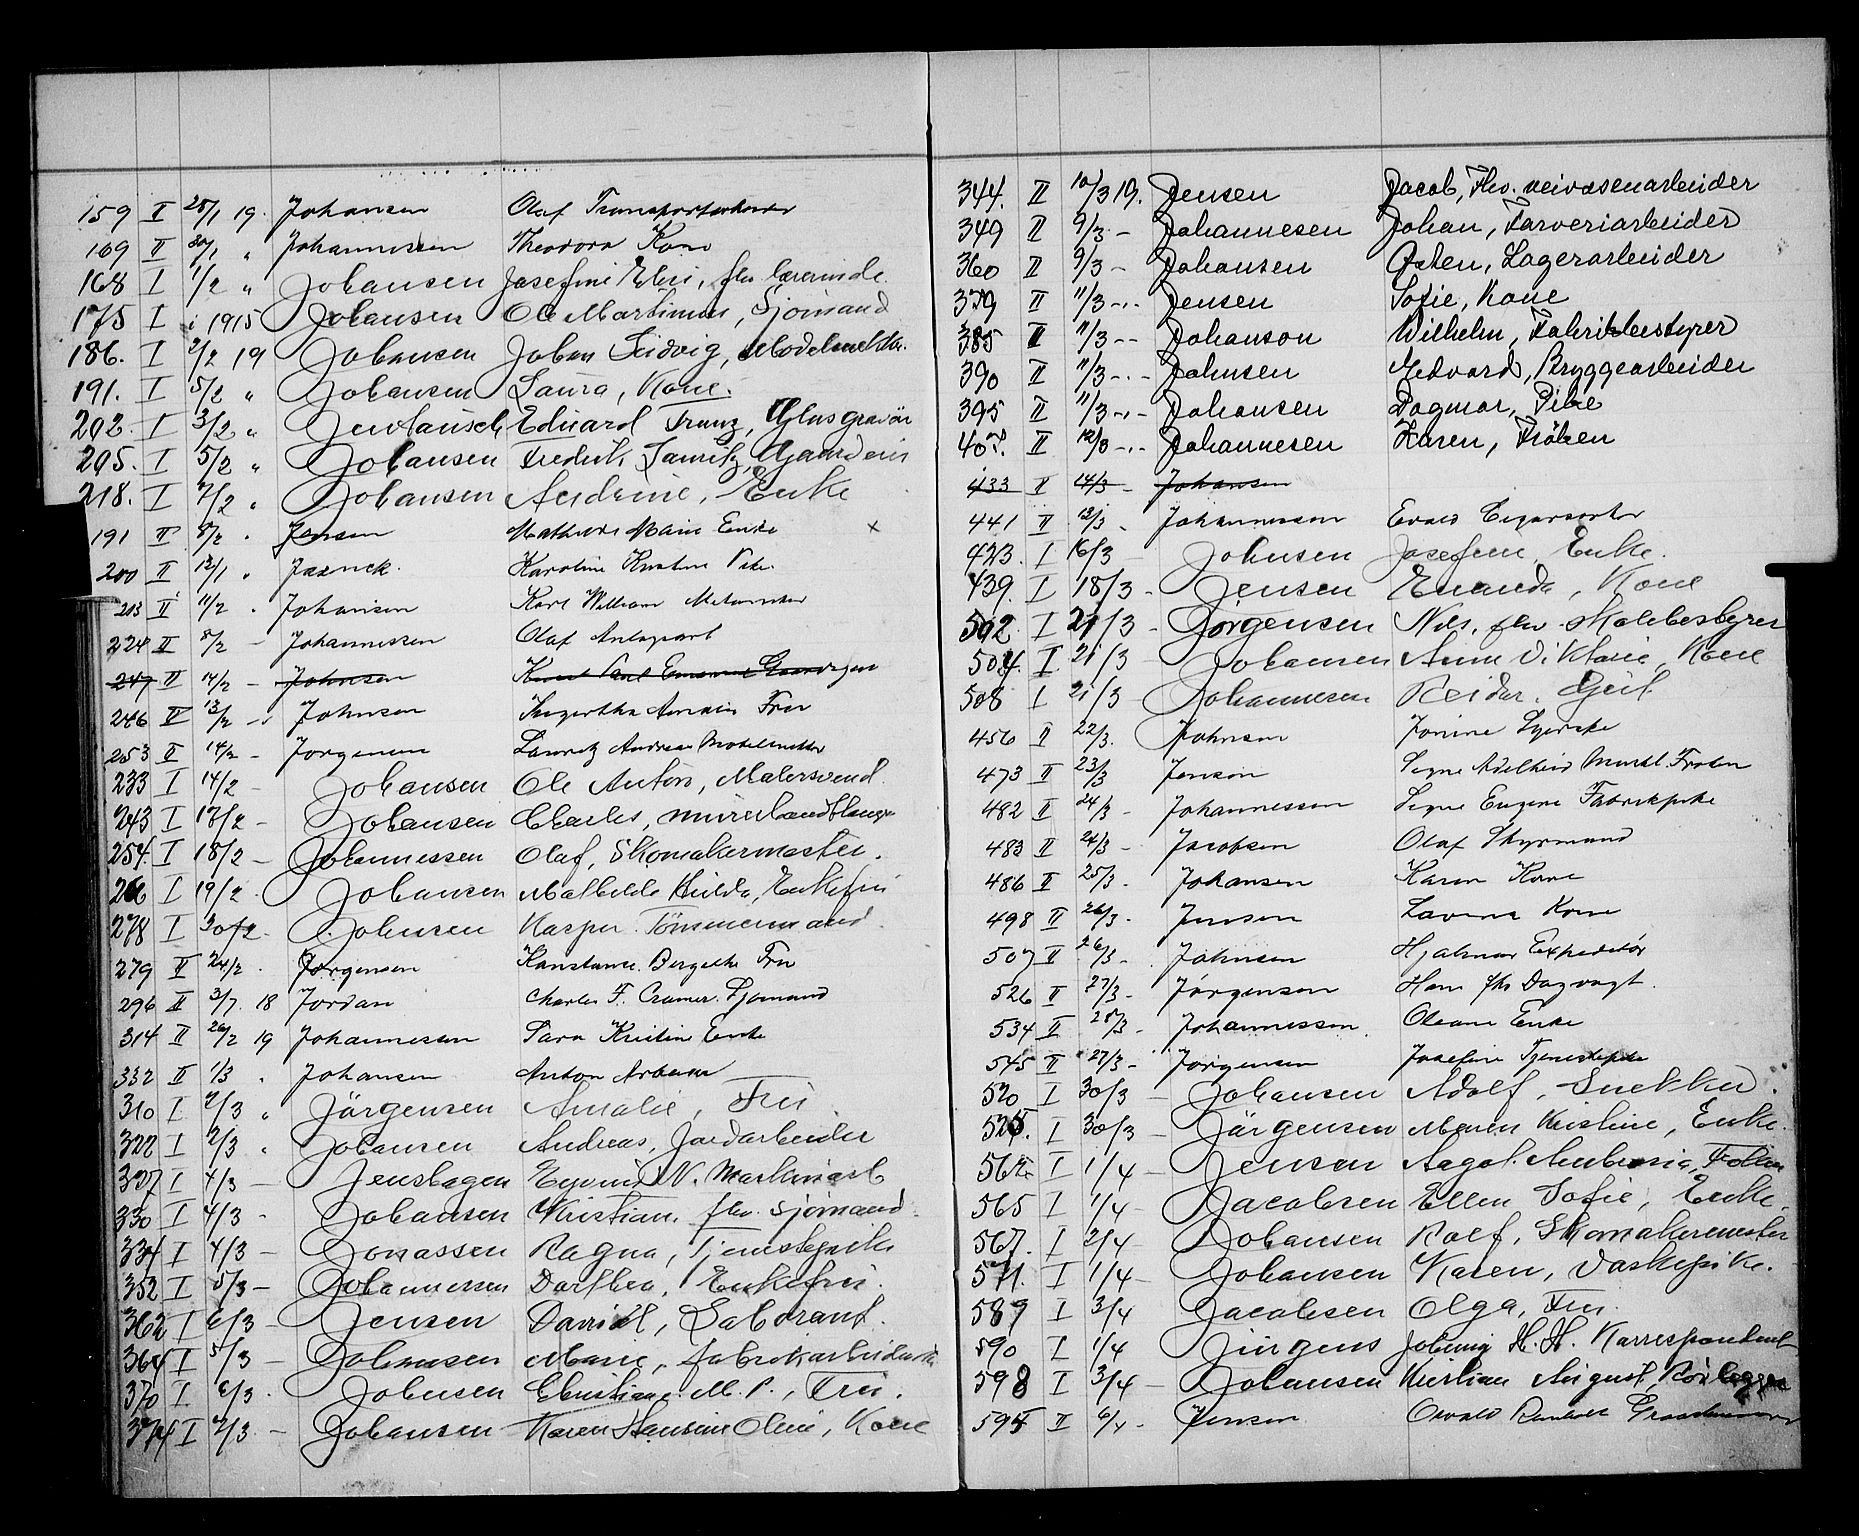 159 II 28/1 19. Johansen Olaf
169 II 30/1 " Johannessen Theodora Kone
168 I 1/2 " Johansen Josefine Elvi, fhv lærerinde.
175 I i 1915 Johansen Ole Martinius, Sjømand
186. I 2/2 19 Johansen Johan Ludvig,
191. I 5/2 " Johansen Laura, Kone.
202. I 3/2 " Eduard Franz, Glasgravør
205. I 5/2 " Johansen Fredrik
218. I 7/2 " Johansen Andrine, Enke
191 II 8/2 " Jensen Mathilde Marie Enke x
200 II 12/1 " Karoline Kristine Pike.
213 II 11/2 " Johansen Karl William
224 II 8/2 - Johannessen Olaf
247 II 14/2 - Johnsen
246 II 13/2 - Johnsen Fru
253 II 14/2 - Jørgensen Lauritz Andreas
233 I 14/2 - Johansen Ole Anton, Malersvend.
243 I 17/2 - Johansen Charles,
254. I 18/2 - Johannessen Olaf, Skomakermester.
I 19/2 - Johansen Mathilde Hilda, Enkefru
278 I Johnsen Kasper Tømmermand.
279 II 24/2 . Jørgensen Konstance Bergithe Fru
296 II 3/7. 18 Jordan Charles F. Cramer. Sjømand
314 II 26/2 19 Johannessen Sara Kristine Enke
332 II 1/3 " Johansen Anton Arbeider
310 I 2/3 " Jörgensen Amalie, Fru.
322 I 2/3 " Johansen Andreas, Jordarbeider
327 I 4/3 - Jenshagen Eyvind N.
330 I 4/3 - Johansen Kristian, fhv. sjømand.
334 I 4/3 - Jonassen Ragna, Tjenestepike
352 I 5/3 - Johannessen Dorthea, Enkefru.
362 I 6/3 - Jensen David, Laborant.
364 I 5/3 - Johansen Marie, fabrikarbeiderske
370 I 6/3. Johnsen Christiane M. P., Fru.
374 I 7/3. - Johansen Karen Hansine Oline, Kone
344. II 10/3 19. Jensen Jacob, Fhv. veivæsenarbeider
349 II 9/3 - Johannesen Johan, Farveriarbeider
360 II 9/3 - Johansen Østen, Lagerarbeider
379 II 11/3 -.- Jensen Sofie, Kone
385 II 11/3 -- Johanson Wilhelm, Fabrikbestyrer
390 II 11/3 -.- Johnsen Medvard, Bryggearbeider
395 II 11/3 -.- Johansen Dagmar, Pike
407. II 12/3 -.- Johannesen Karen, Frøken
433 II 14/3 - Johansen
441 II 13/3 - Johannessen Evald Cigarsorter
423. I 16/3 Johnsen Josefine, Enke.
439. I 18/3 - Jensen Enanda, Kone
502. I 21/3 - Jørgensen Nils, fhv.
504. I 21/3 - Johansen Anne Viktorie, Kone
508 I 21/3 Johannesen Reidar, Gut
456 II 22/3. Johnsen Jonine
473 II 23/3 Jenson Signe Adelheid Frøken
482 II 24/3 - Johannessen Signe Eugenie Fabrikpike
483 II 24/3 - Jacobsen Olaf Styrmand
486 II 25/3 - Johansen Karen Kone
498 II 26/3 - Jensen Lavina Kone
507 II 26/3 - Johnsen Hjalmar Expeditør
526 II 27/3 - Jørgensen Hans fhv Dagvagt.
534 II 28/3 - Johannessen. Oleane Enke
545 II 27/3 - Jørgensen Josefine Tjenestepike
520 I 30/3 - Johansen Adolf, Snekker.
I 30/3 - Jørgensen Maren Kristine, Enke.
I 1/4 - Jensen Aagot Frøken
565 I 1/4 - Jacobsen Ellen Sofie, Enke.
567. I 2/4 Johansen Rolf, Skomakermester
571. I 1/4 - Johansen Karen, Vaskepike.
589 I 3/4 Jacobsen Olga, Fru.
590 I 1/4 Jürgens H. H. Korrespondent
598 I 3/4 - Johansen Kristian August, Rørlegger
595 II 6/4 - Jensen Osvald